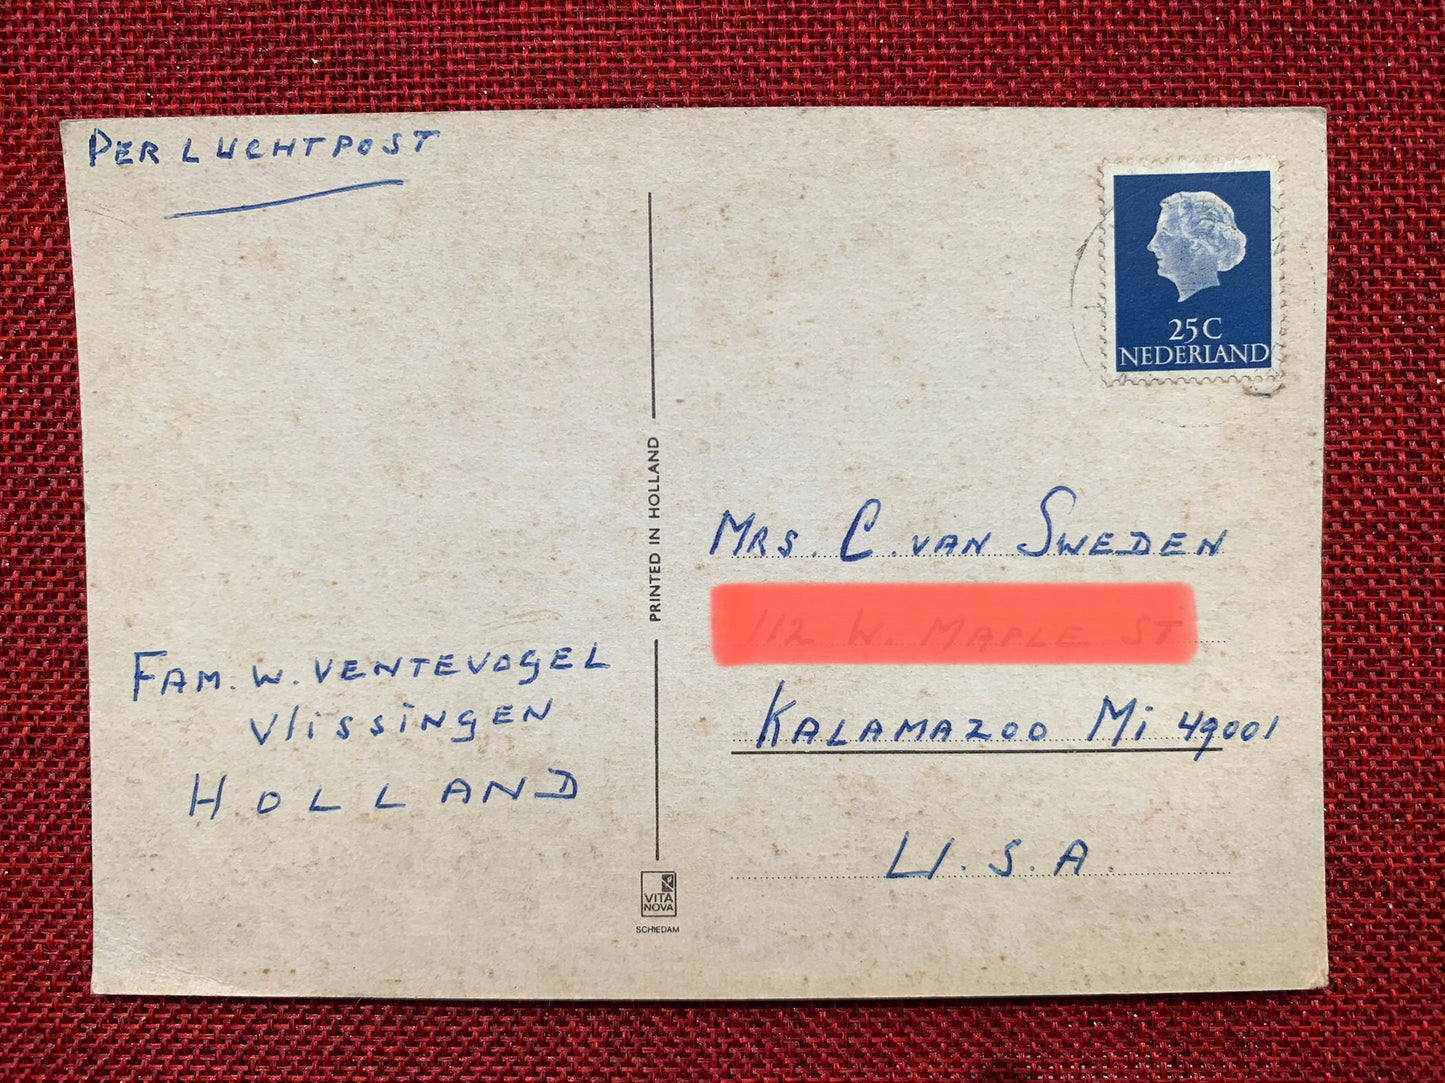 PER LUCHTPOST
FAM. W. VENTEVOGEL
VlISSINGEN
HOLLAND
PRINTED IN HOLLAND
VITA
NOVA
SCHIEDAM
25C
NEDERLAND
MRS. C. VAN SWEDEN
KALAMAZOO Mi 49001
U.S.A.